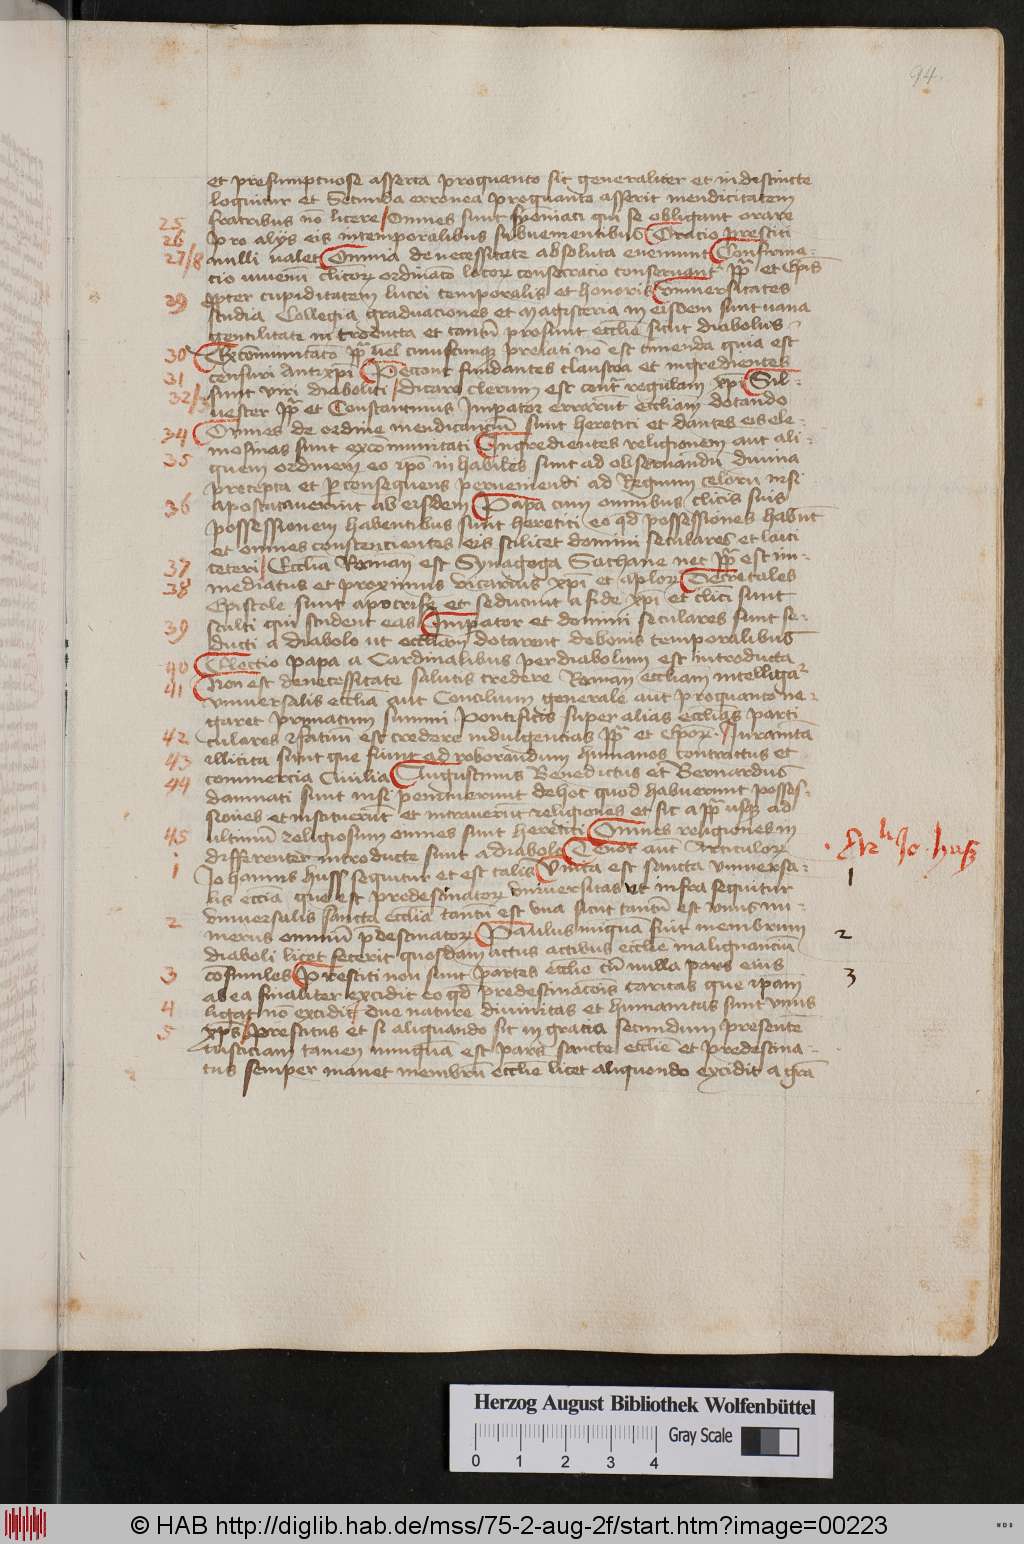 94.
et presumptuose asserta proquanto sic generaliter et indestincte
loquitur et Secunda erronea proquanto asserit mendicitatem
25 fratribus nō licere / Omnes sunt symoniaci qui se obligant orare
26 pro alijs eis intemporalibus subuenientibus Oratio presciti
27/8 nulli ualet Omnia denecessitate absoluta eueniunt Confirma-
cio iuuenū clicoꝝ ordinatō locoꝝ consecracio conseruant pp̄ et ep̄is
29 ꝓpter cupiditatem lucri temporalis et honoris Uniuersitates
studia Collegia graduaciones et magisteria in eisdem sunt uana
gentilitate introducta et tantū prosunt ecclie sicut diabolus
30 Excommunicatō pp̄ uel cuiuscunqꝫ prelati nō est timenda quia est
31 censura Antixpi Peccant fundantes claustra et ingredientes
32/3 sunt uiri diabolici / dicare clerum est contra regulam xpi Sil-
uester pp̄ et Constantinus Imperator errarūt eccliam dotando
34 Omnes de ordine mendicanciū sunt heretici et dantes eis ele-
mosinas sunt excōmunicati Ingredientes religionem aut ali-
35 quem ordinem eo ip̄o inhabiles sunt ad obseruandū diuina
precepta et ꝑ consequens perueniendi ad Regnum celorū nisi
36 apostatauerint ab eisdem Papa cum omnibus clicis suis
possessionem habentibus sunt heretici eo qd possessiones habūt
et omnes consencientes eis scilicet domini seculares et laici
37 ceteri / Ecclia Roman est Synagoga Sathane nec pp̄ est im-
38 mediatus et proximus vicarius xpi et aploꝝ Decretales
Epistole sunt apocrife et seducunt a fide xpi et clici sunt
39 stulti qui student eas Imperator et domini seculares sunt se-
ducti a diabolo ut eccliam dotarent debonis temporalibus
40 Electio pape a Cardinalibus perdiabolum est introducta
41 Non est denecessitate salutis credere Roman eccliam intelliga
vniuersalis eccliā aut Concilium generale aut proquanto ne-
garet primatum summi Pontificis super alias ecclias parti
42 culares Fatuū est credere indulgenciis pp̄ et epoꝝ / Iuramēta
43 illicita sunt que fiunt ad roborandum humanos contractus et
44 commercia Ciuilia Augustinus Benedictus et Bernardus
damnati sunt nisi penituerunt dehoc quod habuerunt posses-
siones et instituerūt et intrauerūt religiones et sic a pp̄ usqꝫ ad
45 ultimū religiosum omnes sunt heretici Omnes religiones in
differenter introducte sunt a diabolo Tenor aut Articuloꝝ
Arli Jo. huß
1 Johannis Huss sequitur et est talis Unica est sancta vniuersa-
1
lis ecciā que est predestinatoꝝ vniuersitas Et infra sequitur
vniuersalis sancta eccliā tantū est vna sicut tantū est vnus nu-
2 merus omniū p̄destinatoꝝ Paulus nūquā fuit membrum
2
diaboli licet fecerit quosdam actus actibus ecclie malignanciū
3 cōsimiles Presciti non sunt partes ecclie cū nulla pars eius
3
ab ea finaliter excidit eo qd predestinacōis caritas que ip̄am
4 ligat nō excidit / Due nature diuinitas et humanitas sunt vnus
5 xp̄s / Prescitus et si aliquando sit in gracia secundum presentē
iusticiam tamen nunquā est pars sancte ecclie et predestina-
tus semper manet membrū ecclie licet aliquando excidit a grā
Herzog August Bibliothek Wolfenbüttel
Gray Scale
0 1 2 3 4
© HAB http://diglib.hab.de/mss/75-2-aug-2f/start.htm?image=00223